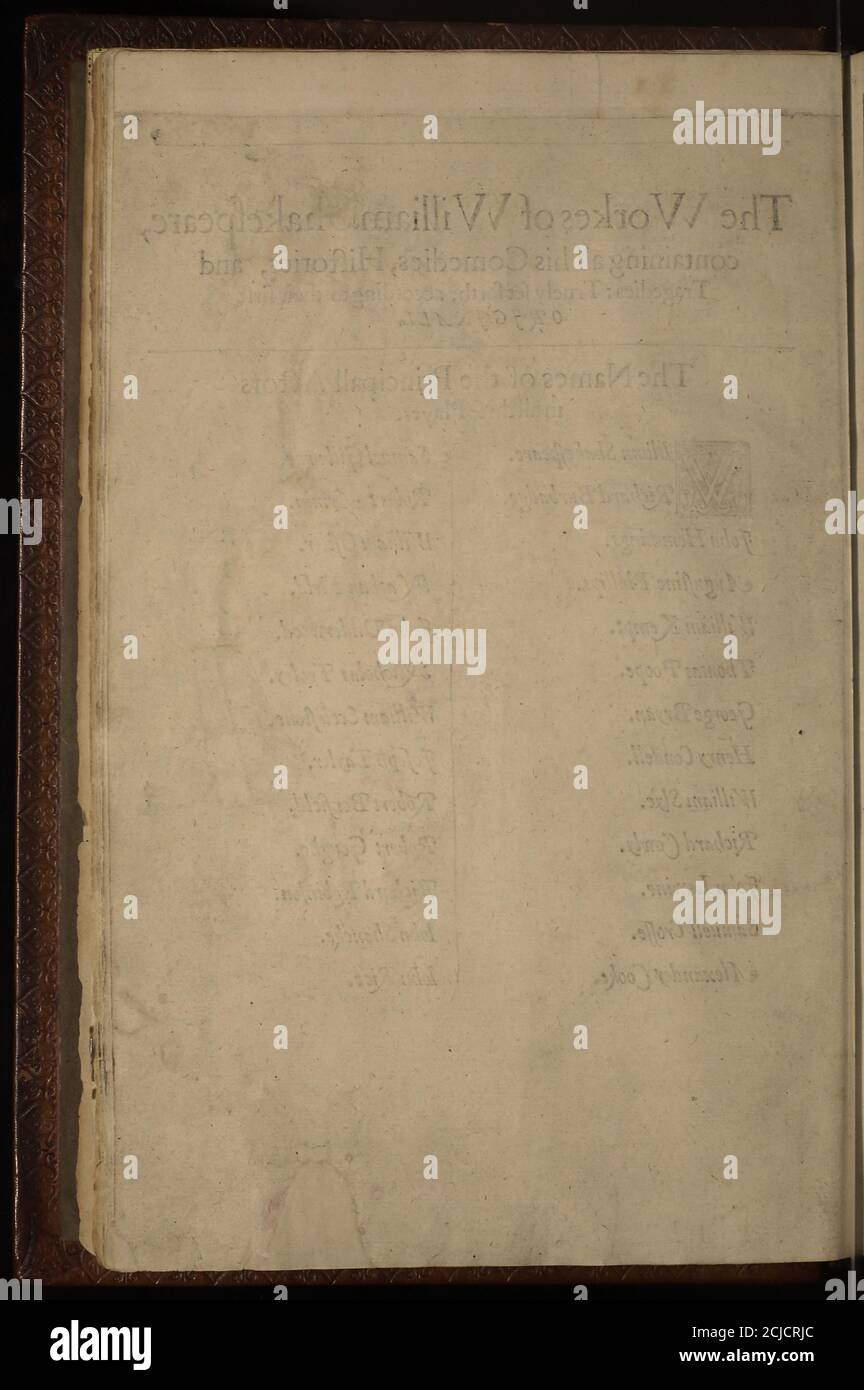 The VVorkes of VVilliam Shakeſpeare,
containing all his Comedies, Hiſtories, and
Tragedies: Truely ſet forth, according to their firſt
ORJGJNALL.
The Names of the Principall Actors
in all theſe Playes.
William Shakeſpeare.
Richard Burbadge.
John Hemmings.
Auguſtine Phillips.
William Kempt.
Thomas Poope.
George Bryan.
Henry Condell.
William Slye.
Richard Cowly.
John Lowine.
Samuell Croſſe.
Alexander Cooke.
Samuel Gilburne.
Robert Armin.
William Oſtler.
Nathan Field.
John Underwood.
Nicholas Tooley.
William Eccleſtone.
Joſeph Taylor.
Robert Benfield.
Robert Goughe.
Richard Robinſon.
Iohn Shancke.
Iohn Rice.
alamy
alamy
alamy
a
alamy
Image ID: 2CJCRJC
www.alamy.com